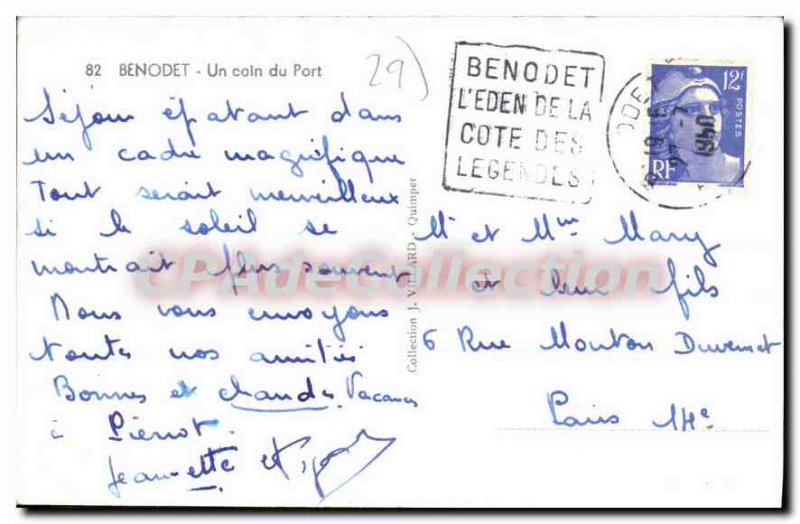 82 BENODET - Un coin du Port
29)
Séjour épatant dans
un cadre magnifique
Tout serait merveilleux
si le soleil se
montrait plus souvent
Nous vous envoyons
toutes nos amitiés
Bonnes et chaudes Vacances
à Pierrot.
Jeannette et
Collection J. VILLARD - Quimper
BENODET
L'EDEN DE LA
COTE DES
LEGENDES!
ODET
19 H
27 -7
1950
12F
POSTES
RF
Mr et Mme Mary
et leur fils
6 Rue Mouton Duvernet
Paris 14e
CPAdeCollection